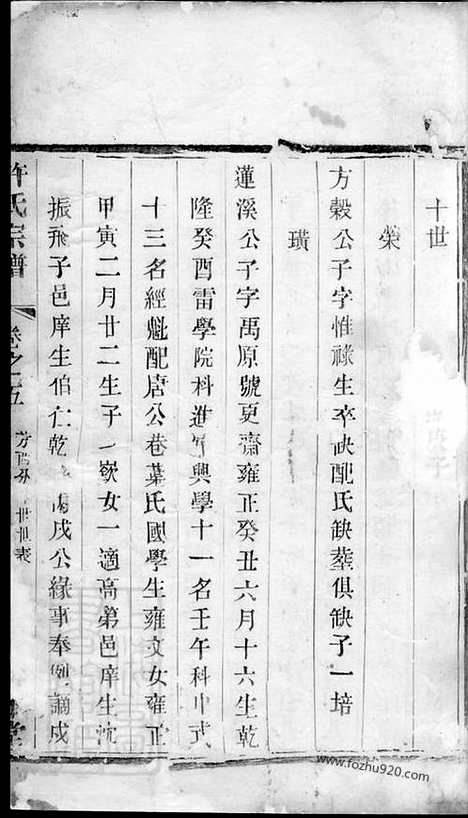 十世
榮
方穀公子字惟祿生卒缺配氏缺塟俱缺子一培
璜
蓮溪公子字禹原號夏齋雍正癸丑六月十六生乾
隆癸酉雷學院科進興學十一名壬午科中式
十三名經魁配唐公巷葉氏國學生雍文女雍正
甲寅二月廿二生子一嶔女一適高弟邑庠生沈
振飛子邑庠生伯仁乾丙戌公緣事奉例謫戍
許氏宗譜
卷之五
世世表
堂
www.fozhu920.com